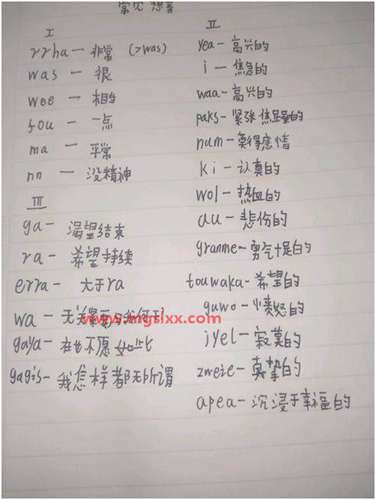 常见想音
I
rrha — 非常 (>was)
was — 很
wee — 相当
fou — 一点
ma — 平常
nn — 没精神
III
ga — 渴望结束
ra — 希望持续
erra — 大于ra
wa — 无
gaya — 不愿
gagis — 我怎样都无所谓
II
yea — 高兴的
i — 焦急的
waa — 高兴的
paks — 紧张
num — 莫得感情
ki — 认真的
wol — 热血的
au — 悲伤的
granme — 勇气十足的
touwaka — 希望的
guwo — 愤怒的
iyel — 寂寞的
zweie — 真挚的
apea — 沉浸于幸福的
www.mgslxx.com